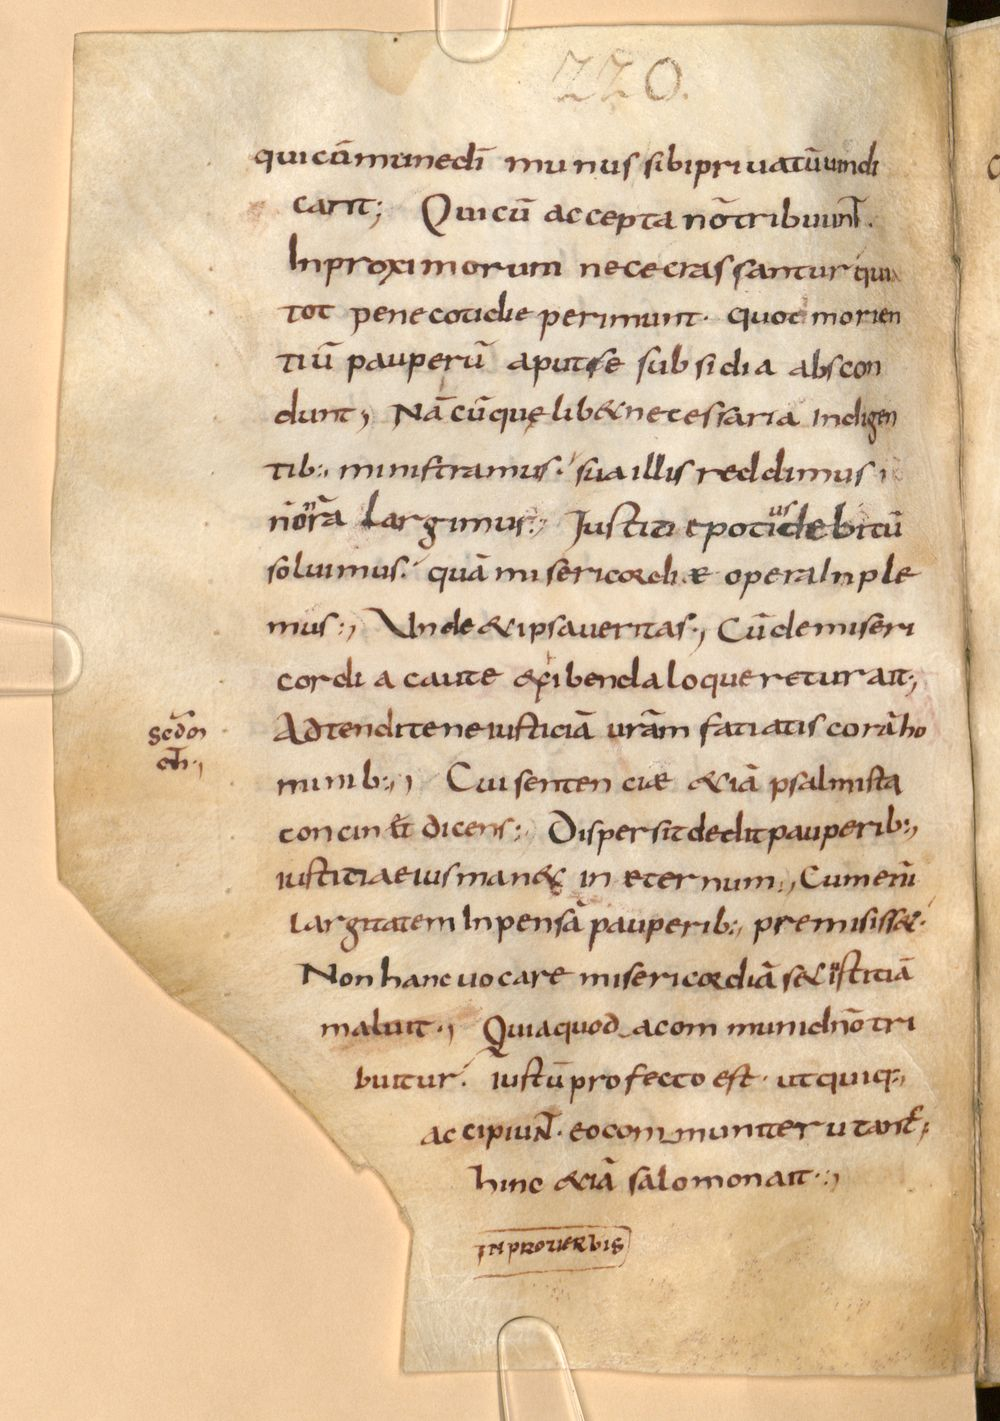 220.
qui cōmunedī munus sibi priuatū uindi
cant; Qui cū accepta nō tribuunt.
In proximorum nece crassantur qui
tot pene cotidie perimunt. quot morien
tiū pauperū aput se subsidia abscon
dunt; Nā cū quę lib& necessaria indigen
tib:, ministramus. sua illis reddimus
ñ nr̄a largimus:, Iustitię potius debitū
soluimus. quā misericordiæ opera Inple
mus:, Unde & ipsa ueritas., Cū de miseri
cordia caute exibenda loqueretur ait.,
Adtendite ne iusticiā ur̄am fatiatis corā ho
minib:,, Cui sentenciæ &iā psalmista
concinet dicens:, Dispersit dedit pauperib:,
iustitia eius man& in eternum., Cum enī
largitatem Inpensā pauperib:, premisiss&.
Non hanc uocare misericordiā sed iustitiā
maluit., Quia quod a commūni dn̄o tri
buitur. iustū profecto est. ut quiq:,
accipiunt. eo communiter utant.,
hinc &iā salomon ait:,
Scd̄o
INPROUERBIS